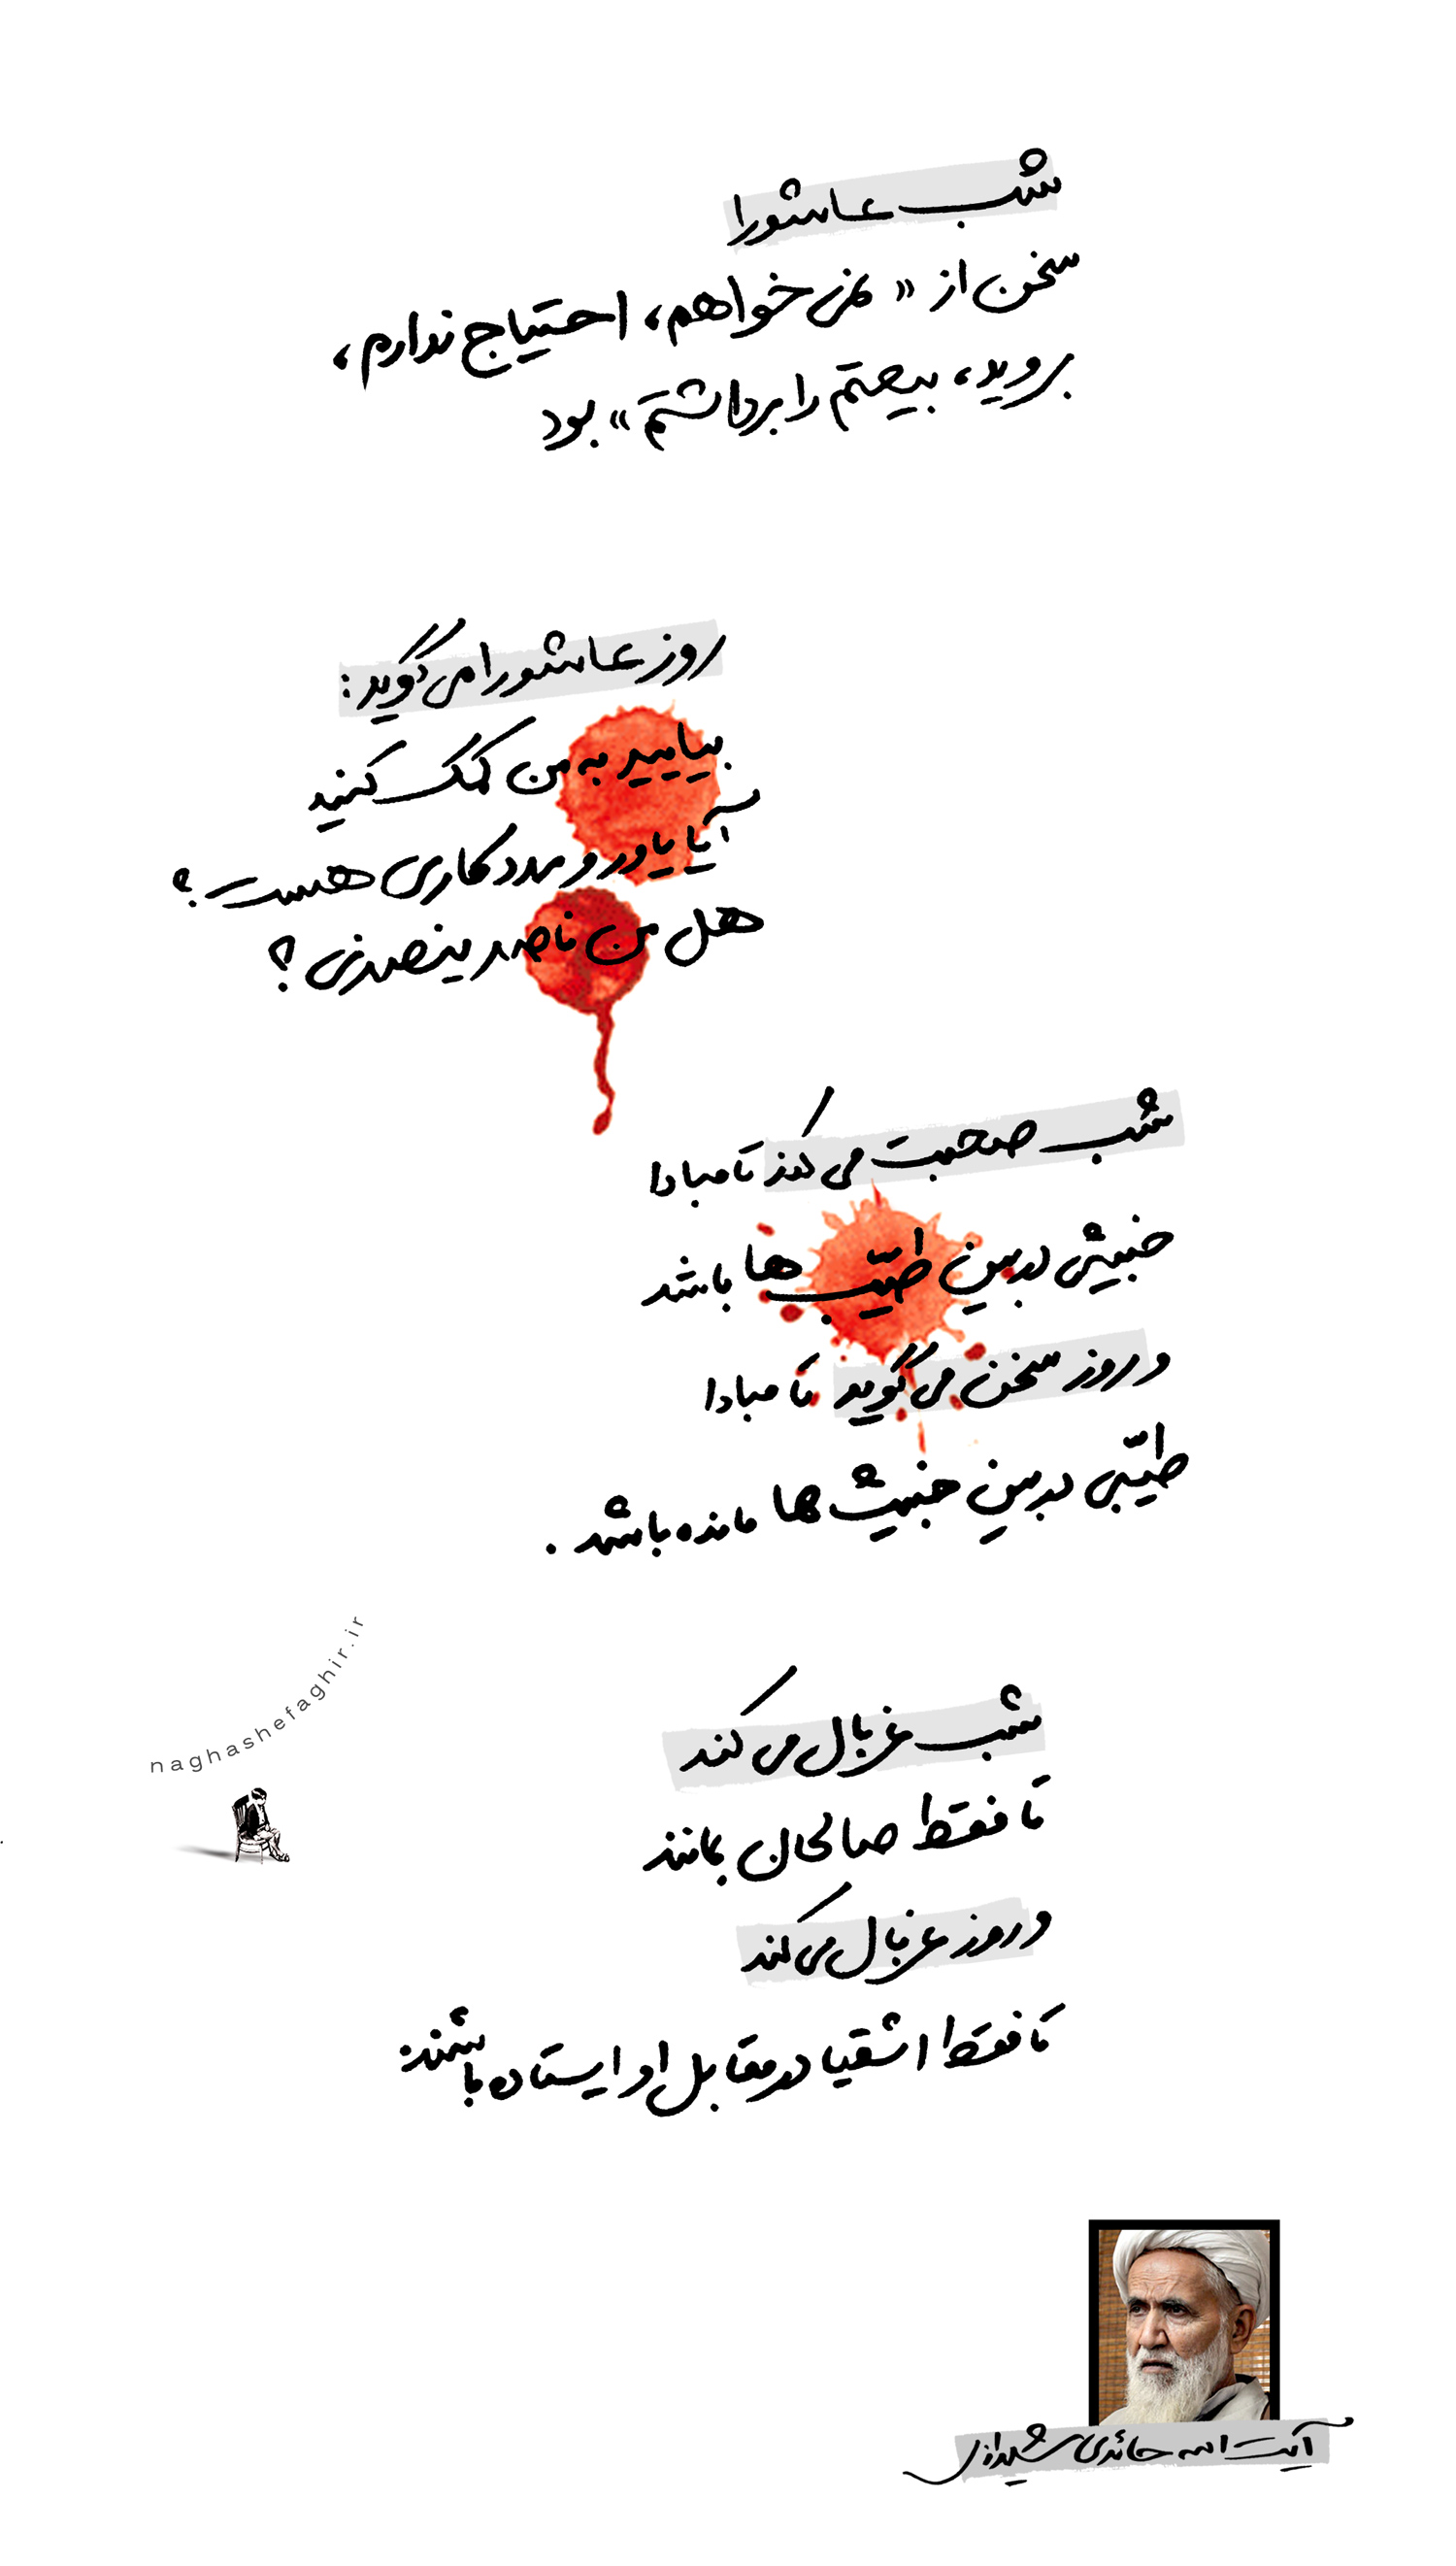 شب عاشورا
سخن از « نمی خواهم، احتیاج ندارم،
بروید، بیعتم را برداشتم » بود
روز عاشورا می گوید:
بیایید به من کمک کنید
آیا یاور و مددکاری هست؟
هل من ناصر ینصرنی؟
شب صحبت می کند تا مبادا
خبیثی در بین طیّب ها باشد
و روز سخن می گوید تا مبادا
طیّبی در بینِ خبیث ها مانده باشد.
شب غربال می کند
تا فقط صالحان بمانند
و روز غربال می کند
تا فقط اشقیا در مقابل او ایستاده باشند.
naghashefaghir.ir
آیت الله حائری شیرازی